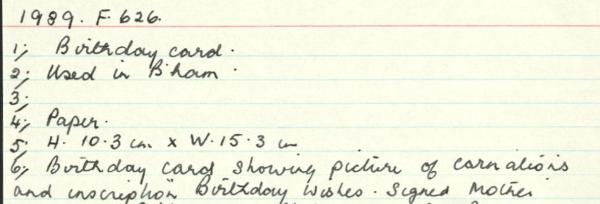 1989. F 626.
1; Birthday card.
2; Used in B'ham.
3;
4; Paper.
5; H. 10.3 cm x W. 15.3 cm
6; Birthday card showing picture of carnations
and inscription Birthday Wishes. Signed Mother